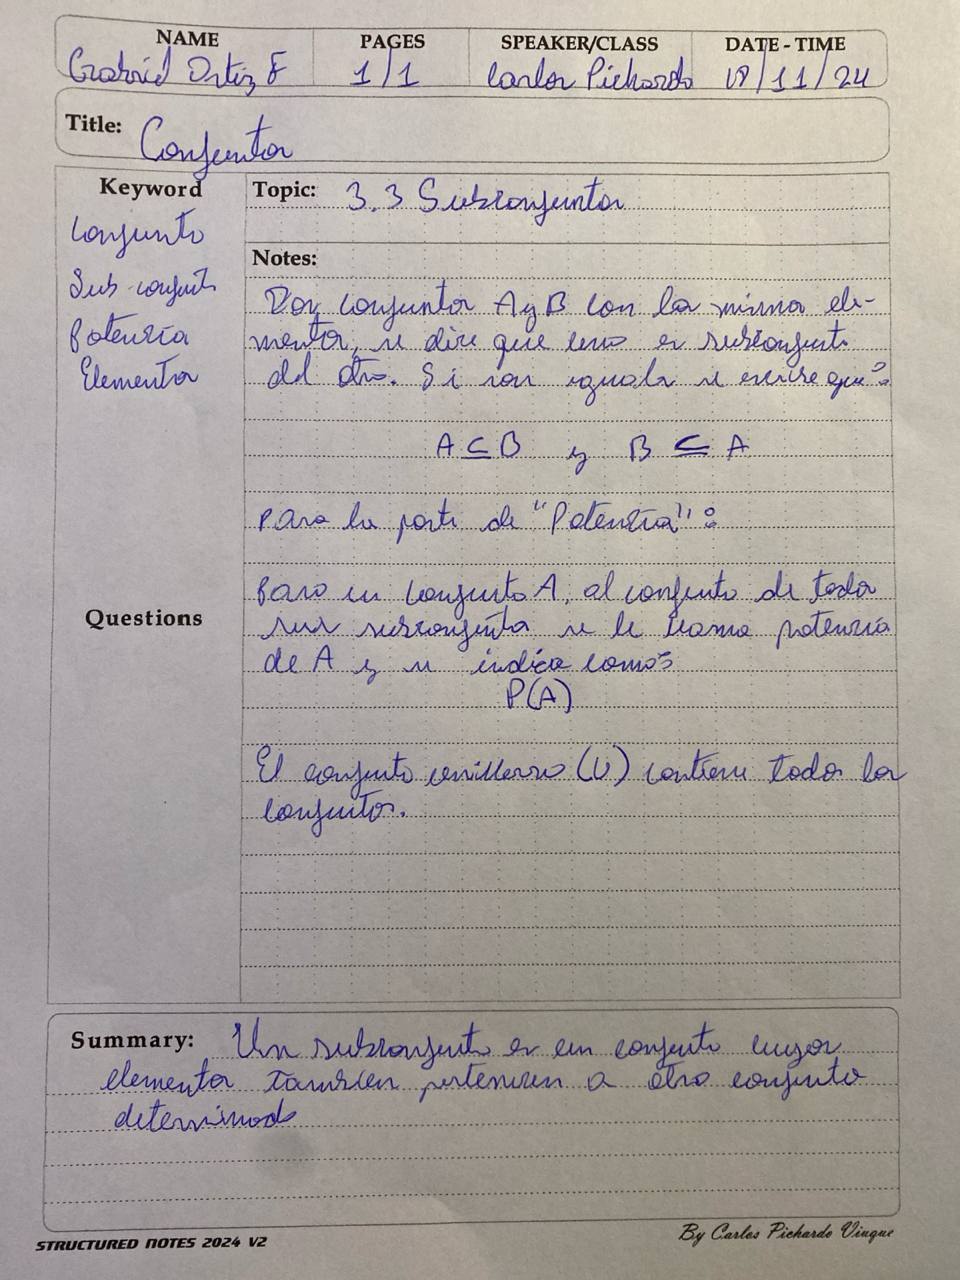 NAME PAGES SPEAKER/CLASS DATE - TIME
Gabriel Ortiz F 1/1 Carlos Pichardo 18/11/24
Title: Conjuntos
Keyword
Conjunto
Sub-conjunto
Potencia
Elementos
Topic: 3.3 Subconjuntos
Notes:
Dos conjuntos A y B con los mismos ele-
mentos, se dice que uno es subconjunto
del otro. Si son iguales se escribe que:
A ⊆ B y B ⊆ A
Para la parte de "Potencia":
Para un conjunto A, al conjunto de todos
sus subconjuntos se le llama potencia
de A y se indica como:
P(A)
El conjunto universo (U) contiene todos los
conjuntos.
Questions
Summary: Un subconjunto es un conjunto cuyos
elementos también pertenecen a otro conjunto
determinado
STRUCTURED NOTES 2024 V2
By Carlos Pichardo Viuque